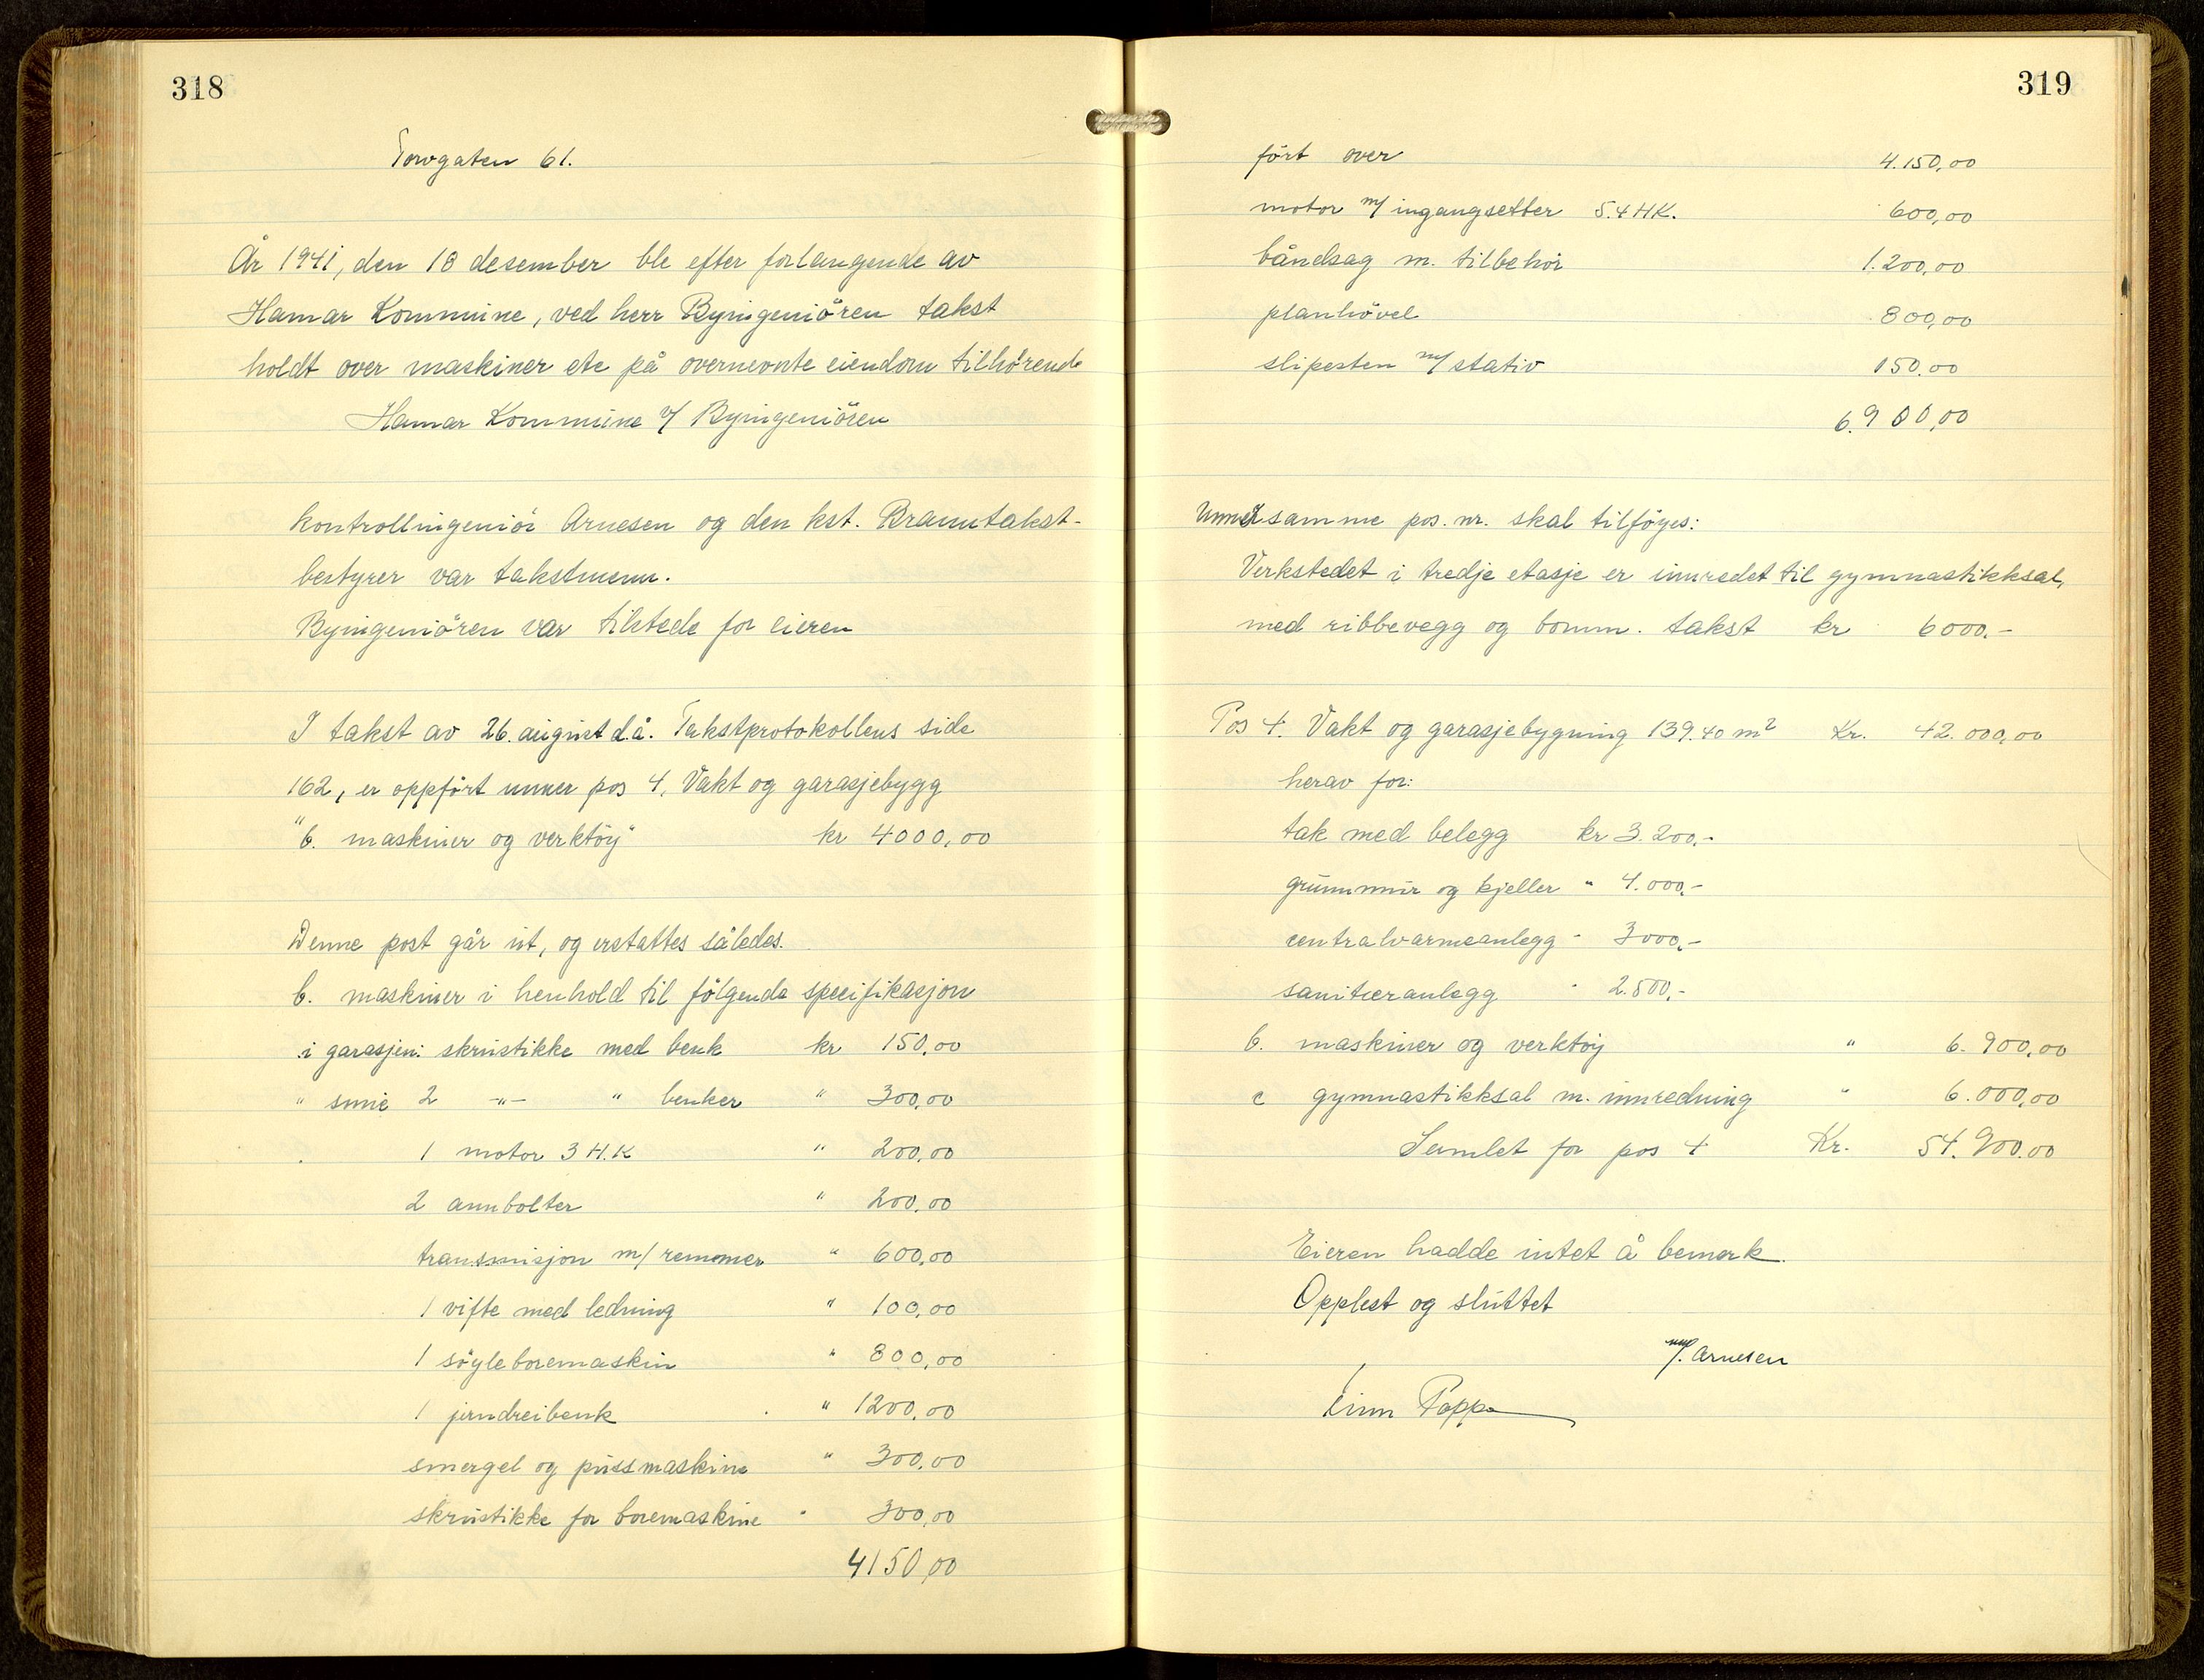 318
Torvgaten 61.
År 1941, den 18 desember ble efter forlangende av
Hamar Kommune, ved herr Byingeniören takst
holdt over maskiner etc på overnevnte eiendom tilhörende
Hamar Kommune v/ Byingeniören
kontrollingeniör Arnesen og den kst. Branntakst-
bestyrer var takstmenn.
Byingeniören var tilstede for eieren
I takst av 26. august d.å. Takstprotokollens side
162, er oppfört unner pos 4, Vakt og garasjebygg
"b. maskiner og verktöy" kr 4000,00
Denne post går ut, og erstattes således.
b. maskiner i henhold til fölgende specifikasjon
i garasjen: skrustikke med benk kr 150,00
" smie 2 -"- " benker " 300,00
1 motor 3 H.K " 200,00
2 ambolter " 200,00
transmisjon m/ remmer " 600,00
1 vifte med ledning " 100,00
1 söyleboremaskin " 800,00
1 jerndreibenk " 1200,00
smergel og pussmaskine " 300,00
skrustikke for boremaskine " 300,00
4150,00
319
fört over 4.150,00
motor m/ ingangsetter 5.4 HK. 600,00
båndsag m. tilbehör 1.200,00
planhövel 800,00
slipesten m/ stativ 150.00
6.900,00
Unner samme pos. nr. skal tilföyes:
Verkstedet i tredje etasje er innredet til gymnastikksal,
med ribbevegg og bomm. takst kr 6000.-
Pos 4. Vakt og garasjebygning 139.40 m² Kr. 42.000,00
herav for:
tak med belegg kr 3.200,-
grunnmur og kjeller " 4.000,-
centralvarmeanlegg " 3000,-
sanitæranlegg " 2.500,-
b. maskiner og verktöy " 6.900,00
c gymnastikksal m. innredning " 6.000,00
Samlet for pos 4 Kr. 54.900.00
Eieren hadde intet å bemerk.
Opplest og sluttet
Arnesen